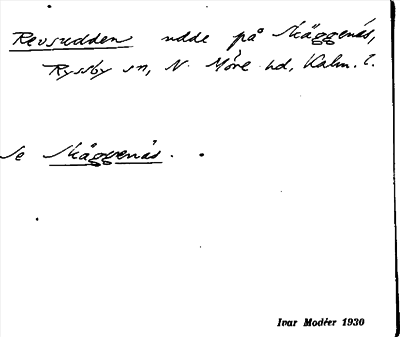 Revsudden udde på Skäggenäs,
Ryssby sn, N. Möre hd, Kalm. l.
Se Skäggenäs.
Ivar Modéer 1930